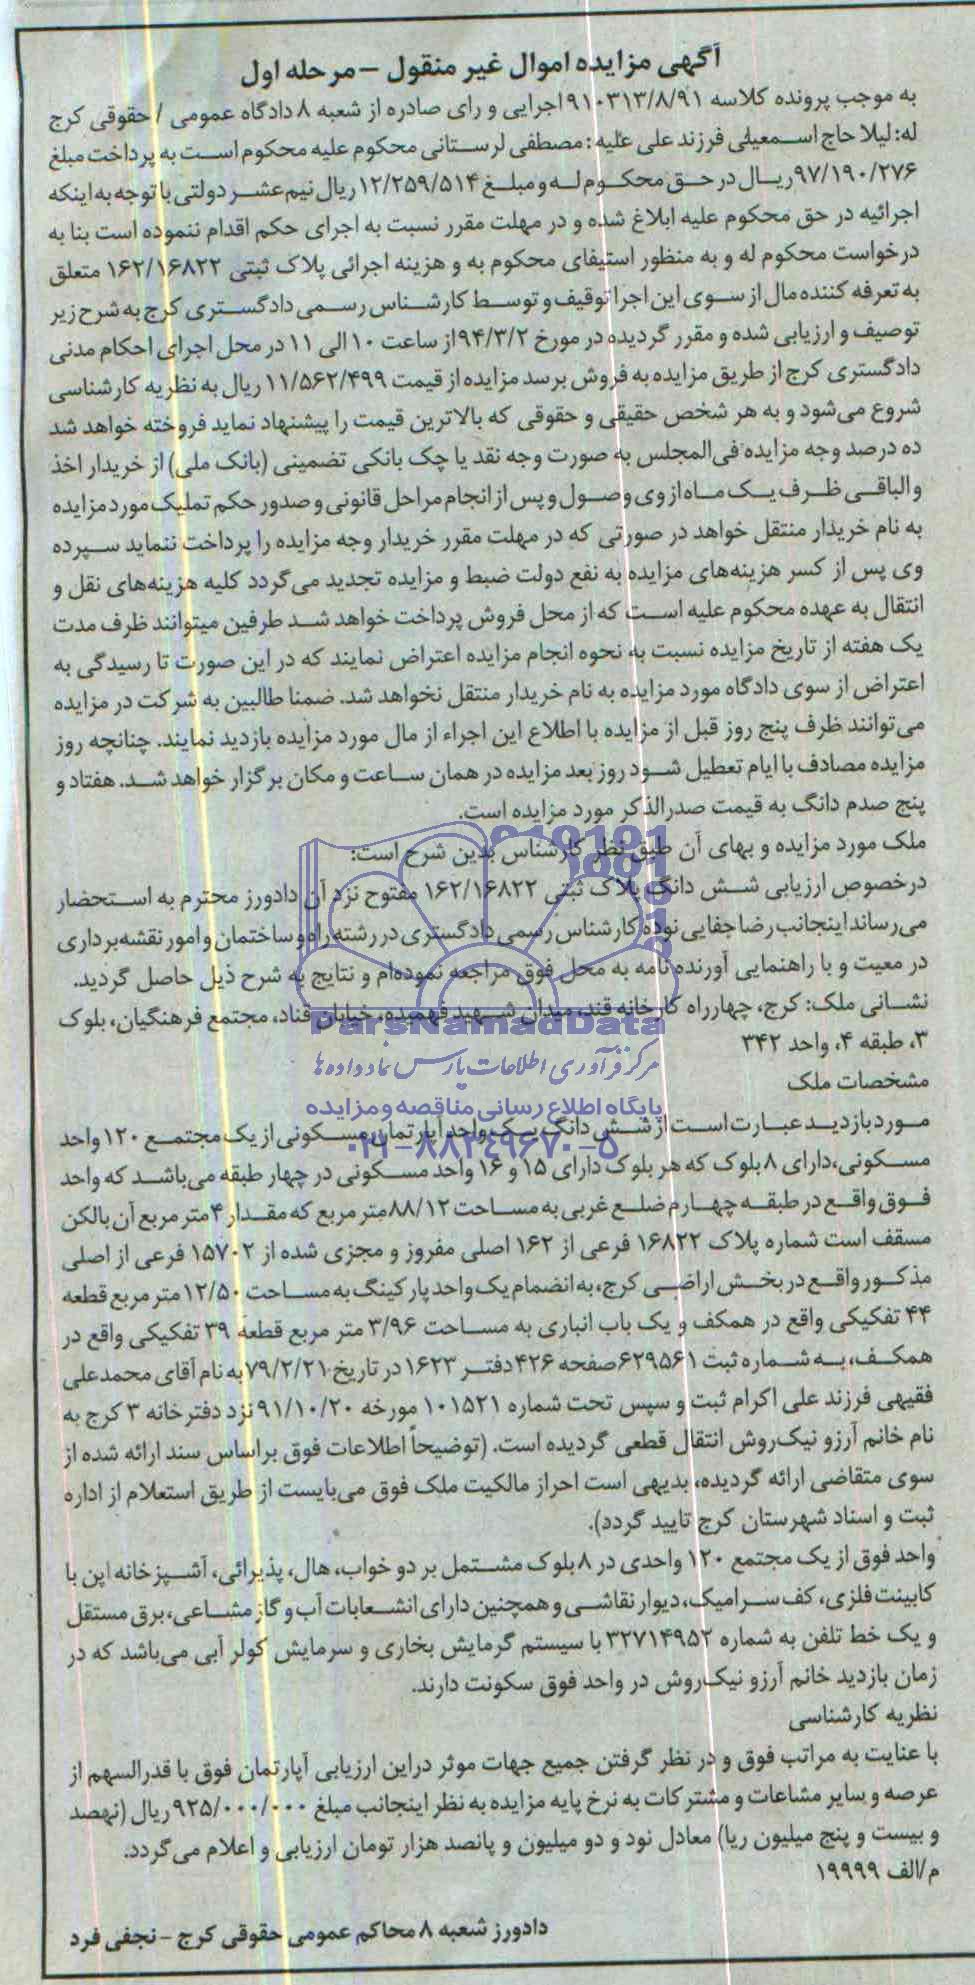 آگهی مزایده اموال غیر منقول – مرحله اول
به موجب پرونده کلاسه ۹۱۰۳۱۳/۸/۹۱ اجرایی و رای صادره از شعبه ۸ دادگاه عمومی / حقوقی کرج
له: لیلا حاج اسمعیلی فرزند علی علیه: مصطفی لرستانی محکوم علیه محکوم است به پرداخت مبلغ
۹۷/۱۹۰/۲۷۶ ریال در حق محکوم له و مبلغ ۱۲/۲۵۹/۵۱۴ ریال نیم عشر دولتی با توجه به اینکه
اجرائیه در حق محکوم علیه ابلاغ شده و در مهلت مقرر نسبت به اجرای حکم اقدام ننموده است بنا به
درخواست محکوم له و به منظور استیفای محکوم به و هزینه اجرائی پلاک ثبتی ۱۶۲/۱۶۸۲۲ متعلق
به تعرفه کننده مال از سوی این اجرا توقیف و توسط کارشناس رسمی دادگستری کرج به شرح زیر
توصیف و ارزیابی شده و مقرر گردیده در مورخ ۹۴/۳/۲ از ساعت ۱۰ الی ۱۱ در محل اجرای احکام مدنی
دادگستری کرج از طریق مزایده به فروش برسد مزایده از قیمت ۱۱/۵۶۲/۴۹۹ ریال به نظریه کارشناسی
شروع می‌شود و به هر شخص حقیقی و حقوقی که بالاترین قیمت را پیشنهاد نماید فروخته خواهد شد
ده درصد وجه مزایده فی‌المجلس به صورت وجه نقد یا چک بانکی تضمینی (بانک ملی) از خریدار اخذ
و الباقی ظرف یک ماه از وی وصول و پس از انجام مراحل قانونی و صدور حکم تملیک مورد مزایده
به نام خریدار منتقل خواهد در صورتی که در مهلت مقرر خریدار وجه مزایده را پرداخت ننماید سپرده
وی پس از کسر هزینه‌های مزایده به نفع دولت ضبط و مزایده تجدید می‌گردد کلیه هزینه‌های نقل و
انتقال به عهده محکوم علیه است که از محل فروش پرداخت خواهد شد طرفین میتوانند ظرف مدت
یک هفته از تاریخ مزایده نسبت به نحوه انجام مزایده اعتراض نمایند که در این صورت تا رسیدگی به
اعتراض از سوی دادگاه مورد مزایده به نام خریدار منتقل نخواهد شد. ضمنا طالبین به شرکت در مزایده
می‌توانند ظرف پنج روز قبل از مزایده با اطلاع این اجراء از مال مورد مزایده بازدید نمایند. چنانچه روز
مزایده مصادف با ایام تعطیل شود روز بعد مزایده در همان ساعت و مکان برگزار خواهد شد. هفتاد و
پنج صدم دانگ به قیمت صدرالذکر مورد مزایده است.
ملک مورد مزایده و بهای آن طبق نظر کارشناس بدین شرح است:
درخصوص ارزیابی شش دانگ پلاک ثبتی ۱۶۲/۱۶۸۲۲ مفتوح نزد آن دادورز محترم به استحضار
می‌رساند اینجانب رضا جفایی نوده کارشناس رسمی دادگستری در رشته راه و ساختمان و امور نقشه‌برداری
در معیت و با راهنمایی آورنده نامه به محل فوق مراجعه نموده‌ام و نتایج به شرح ذیل حاصل گردید.
نشانی ملک: کرج، چهارراه کارخانه قند، میدان شهید فهمیده، خیابان قناد، مجتمع فرهنگیان، بلوک
۳، طبقه ۴، واحد ۳۴۲
ParsNamadData
مرکز فرآوری اطلاعات پارس نماد داده‌ها
مشخصات ملک
پایگاه اطلاع رسانی مناقصه و مزایده
مورد بازدید عبارت است از شش دانگ یک واحد آپارتمان مسکونی از یک مجتمع ۱۲۰ واحد
۰۲۱-۸۸۳۴۹۶۷۰-۵
مسکونی، دارای ۸ بلوک که هر بلوک دارای ۱۵ و ۱۶ واحد مسکونی در چهار طبقه می‌باشد که واحد
فوق واقع در طبقه چهارم ضلع غربی به مساحت ۸۸/۱۲ متر مربع که مقدار ۴ متر مربع آن بالکن
مسقف است شماره پلاک ۱۶۸۲۲ فرعی از ۱۶۲ اصلی مفروز و مجزی شده از ۱۵۷۰۲ فرعی از اصلی
مذکور واقع در بخش اراضی کرج، به انضمام یک واحد پارکینگ به مساحت ۱۲/۵۰ متر مربع قطعه
۴۴ تفکیکی واقع در همکف و یک باب انباری به مساحت ۳/۹۶ متر مربع قطعه ۳۹ تفکیکی واقع در
همکف، به شماره ثبت ۶۲۹۵۶۱ صفحه ۴۲۶ دفتر ۱۶۲۳ در تاریخ ۷۹/۲/۲۱ به نام آقای محمدعلی
فقیهی فرزند علی اکرام ثبت و سپس تحت شماره ۱۰۱۵۲۱ مورخه ۹۱/۱۰/۲۰ نزد دفترخانه ۳ کرج به
نام خانم آرزو نیک‌روش انتقال قطعی گردیده است. (توضیحاً اطلاعات فوق براساس سند ارائه شده از
سوی متقاضی ارائه گردیده، بدیهی است احراز مالکیت ملک فوق می‌بایست از طریق استعلام از اداره
ثبت و اسناد شهرستان کرج تایید گردد).
واحد فوق از یک مجتمع ۱۲۰ واحدی در ۸ بلوک مشتمل بر دو خواب، هال، پذیرائی، آشپزخانه اپن با
کابینت فلزی، کف سرامیک، دیوار نقاشی و همچنین دارای انشعابات آب و گاز مشاعی، برق مستقل
و یک خط تلفن به شماره ۳۲۷۱۴۹۵۲ با سیستم گرمایش بخاری و سرمایش کولر آبی می‌باشد که در
زمان بازدید خانم آرزو نیک‌روش در واحد فوق سکونت دارند.
نظریه کارشناسی
با عنایت به مراتب فوق و در نظر گرفتن جمیع جهات موثر دراین ارزیابی آپارتمان فوق با قدرالسهم از
عرصه و سایر مشاعات و مشترکات به نرخ پایه مزایده به نظر اینجانب مبلغ ۹۲۵/۰۰۰/۰۰۰ ریال (نهصد
و بیست و پنج میلیون ریا) معادل نود و دو میلیون و پانصد هزار تومان ارزیابی و اعلام می‌گردد.
م/الف ۱۹۹۹۹
دادورز شعبه ۸ محاکم عمومی حقوقی کرج – نجفی فرد